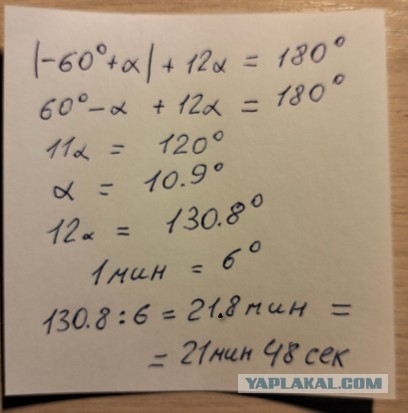 |-60°+α| + 12α = 180°
60°-α + 12α = 180°
11α = 120°
α = 10.9°
12α = 130.8°
1 мин = 6°
130.8 : 6 = 21.8 мин =
= 21 мин 48 сек
YAPLAKAL.COM